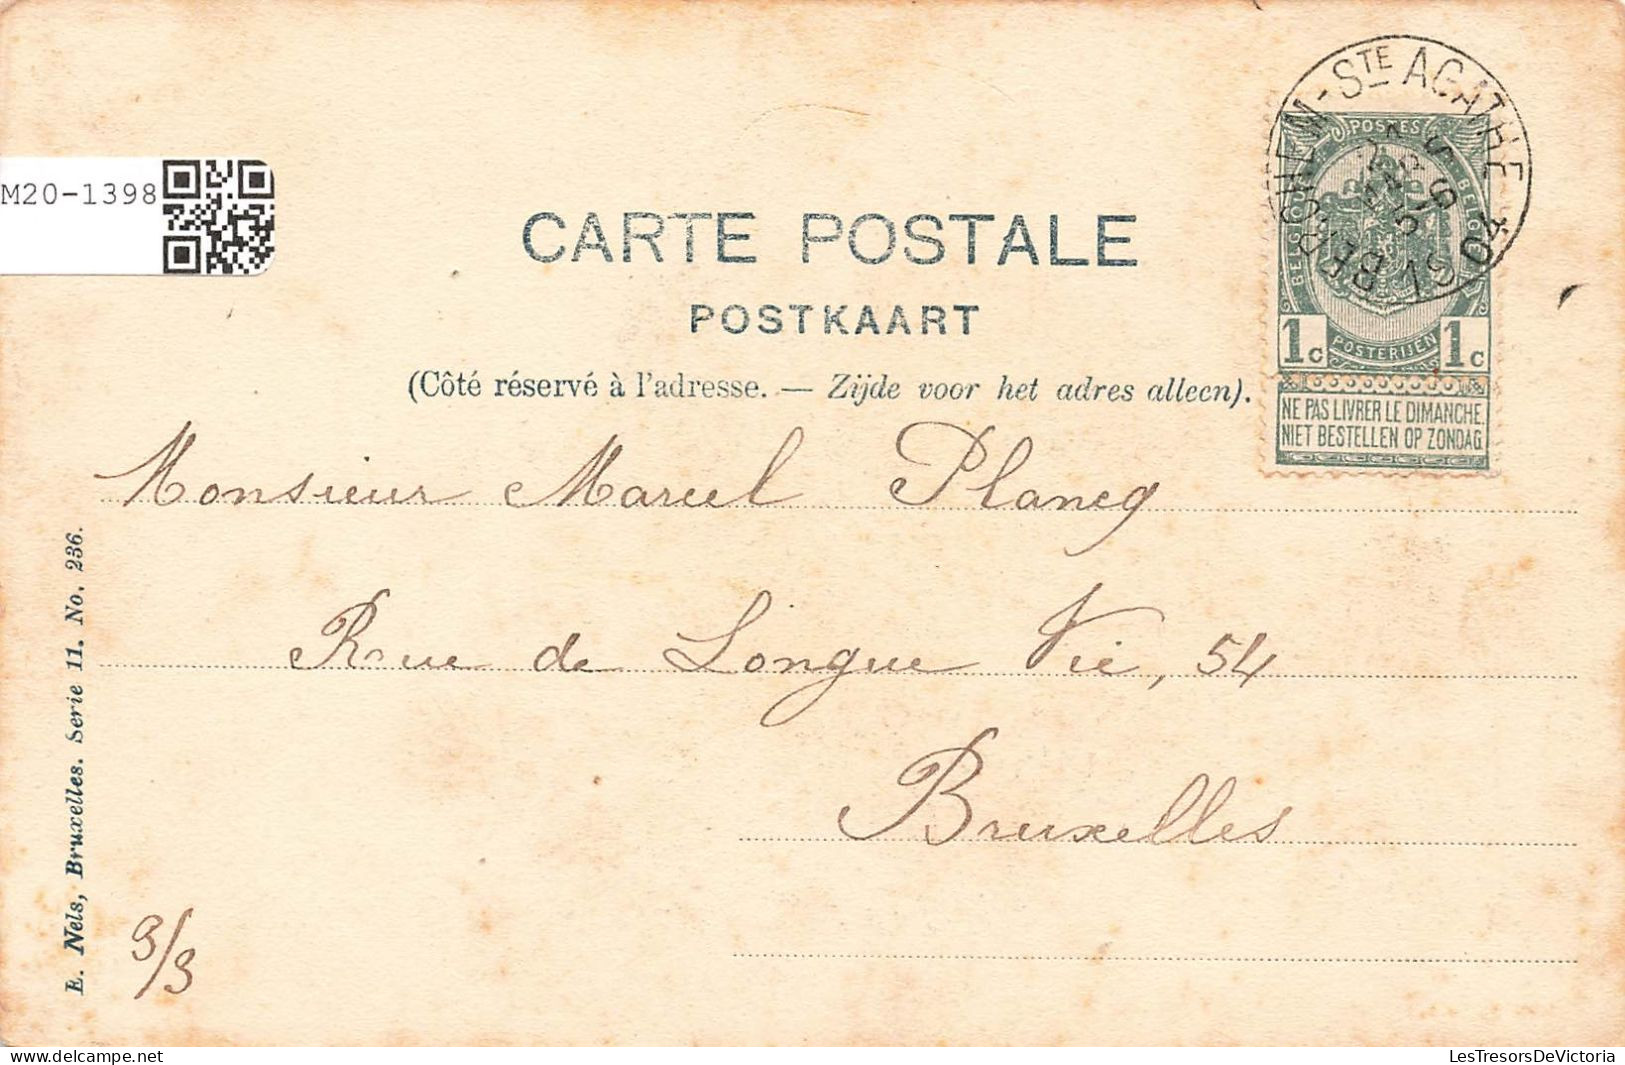 BERCHEM-STE AGATHE
19 04
POSTES
BELGIQUE
BELGIE
M20-1398
CARTE POSTALE
POSTKAART
1c POSTERIJEN 1c
(Côté réservé à l'adresse. — Zijde voor het adres alleen).
NE PAS LIVRER LE DIMANCHE.
NIET BESTELLEN OP ZONDAG
Monsieur Marcel Plancq
Rue de Longue Vie, 54
Bruxelles
3/3
E. Nels, Bruxelles. Serie 11. No. 236.
LesTresorsDeVictoria
https://www.delcampe.net